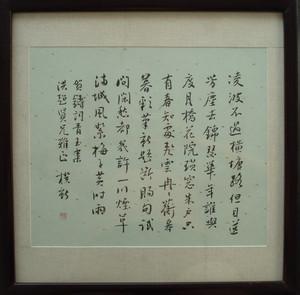 凌波不過橫塘路但目送
芳塵去錦瑟華年誰與
度月橋花院瑣窗朱戶只
有春知處飛雲冉冉蘅皋
暮彩筆新題斷腸句試
問閑愁都幾許一川煙草
滿城風絮梅子黃時雨
賀鑄詞青玉案
洪賢兄雅正